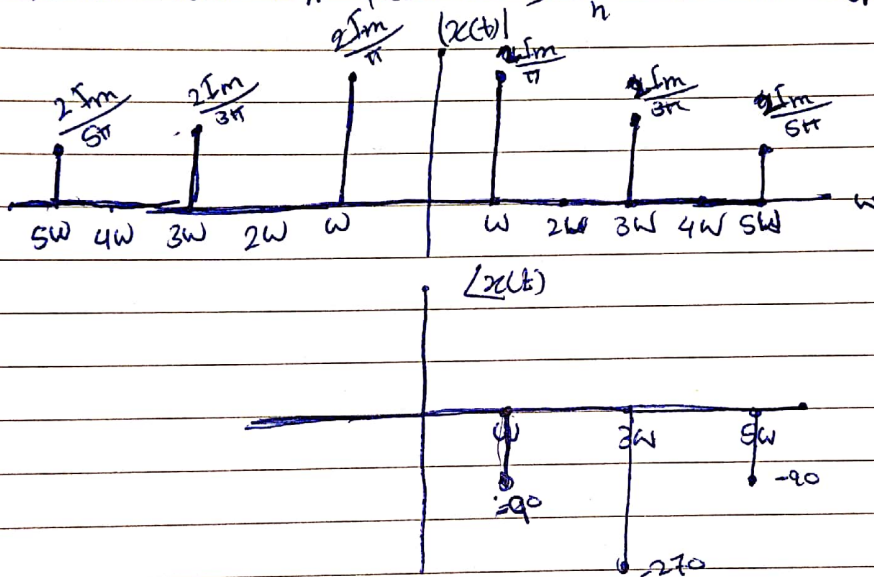 n
|x(t)|
2Im/π 2Im/π
2Im/5π 2Im/3π 2Im/3π 2Im/5π
5W 4W 3W 2W W W 2W 3W 4W 5W W
∠x(t)
W 3W 5W
-90 -90
-270